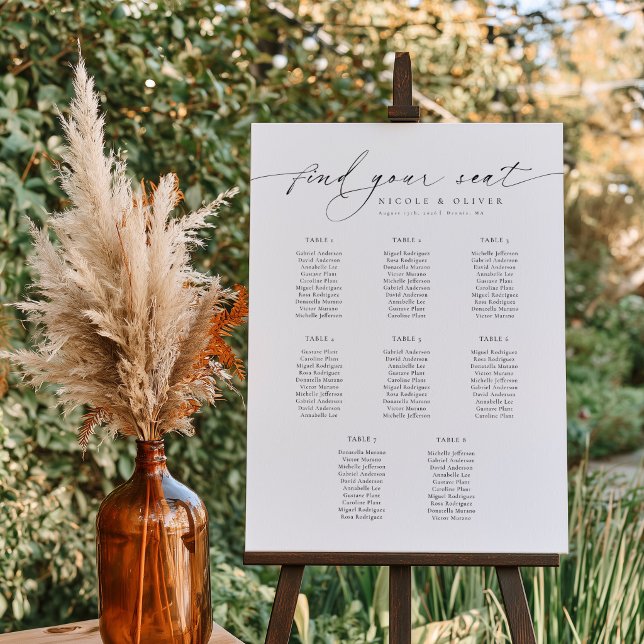 find your seat
NICOLE & OLIVER
August 15th, 2026 | Dennis, MA
TABLE 1
Gabriel Anderson
David Anderson
Annabelle Lee
Gustave Plant
Caroline Plant
Miguel Rodriguez
Rosa Rodriguez
Donatella Murano
Victor Murano
Michelle Jefferson
TABLE 2
Miguel Rodriguez
Rosa Rodriguez
Donatella Murano
Victor Murano
Michelle Jefferson
Gabriel Anderson
David Anderson
Annabelle Lee
Gustave Plant
Caroline Plant
TABLE 3
Michelle Jefferson
Gabriel Anderson
David Anderson
Annabelle Lee
Gustave Plant
Caroline Plant
Miguel Rodriguez
Rosa Rodriguez
Donatella Murano
Victor Murano
TABLE 4
Gustave Plant
Caroline Plant
Miguel Rodriguez
Rosa Rodriguez
Donatella Murano
Victor Murano
Michelle Jefferson
Gabriel Anderson
David Anderson
Annabelle Lee
TABLE 5
Gabriel Anderson
David Anderson
Annabelle Lee
Gustave Plant
Caroline Plant
Miguel Rodriguez
Rosa Rodriguez
Donatella Murano
Victor Murano
Michelle Jefferson
TABLE 6
Miguel Rodriguez
Rosa Rodriguez
Donatella Murano
Victor Murano
Michelle Jefferson
Gabriel Anderson
David Anderson
Annabelle Lee
Gustave Plant
Caroline Plant
TABLE 7
Donatella Murano
Victor Murano
Michelle Jefferson
Gabriel Anderson
David Anderson
Annabelle Lee
Gustave Plant
Caroline Plant
Miguel Rodriguez
Rosa Rodriguez
TABLE 8
Michelle Jefferson
Gabriel Anderson
David Anderson
Annabelle Lee
Gustave Plant
Caroline Plant
Miguel Rodriguez
Rosa Rodriguez
Donatella Murano
Victor Murano